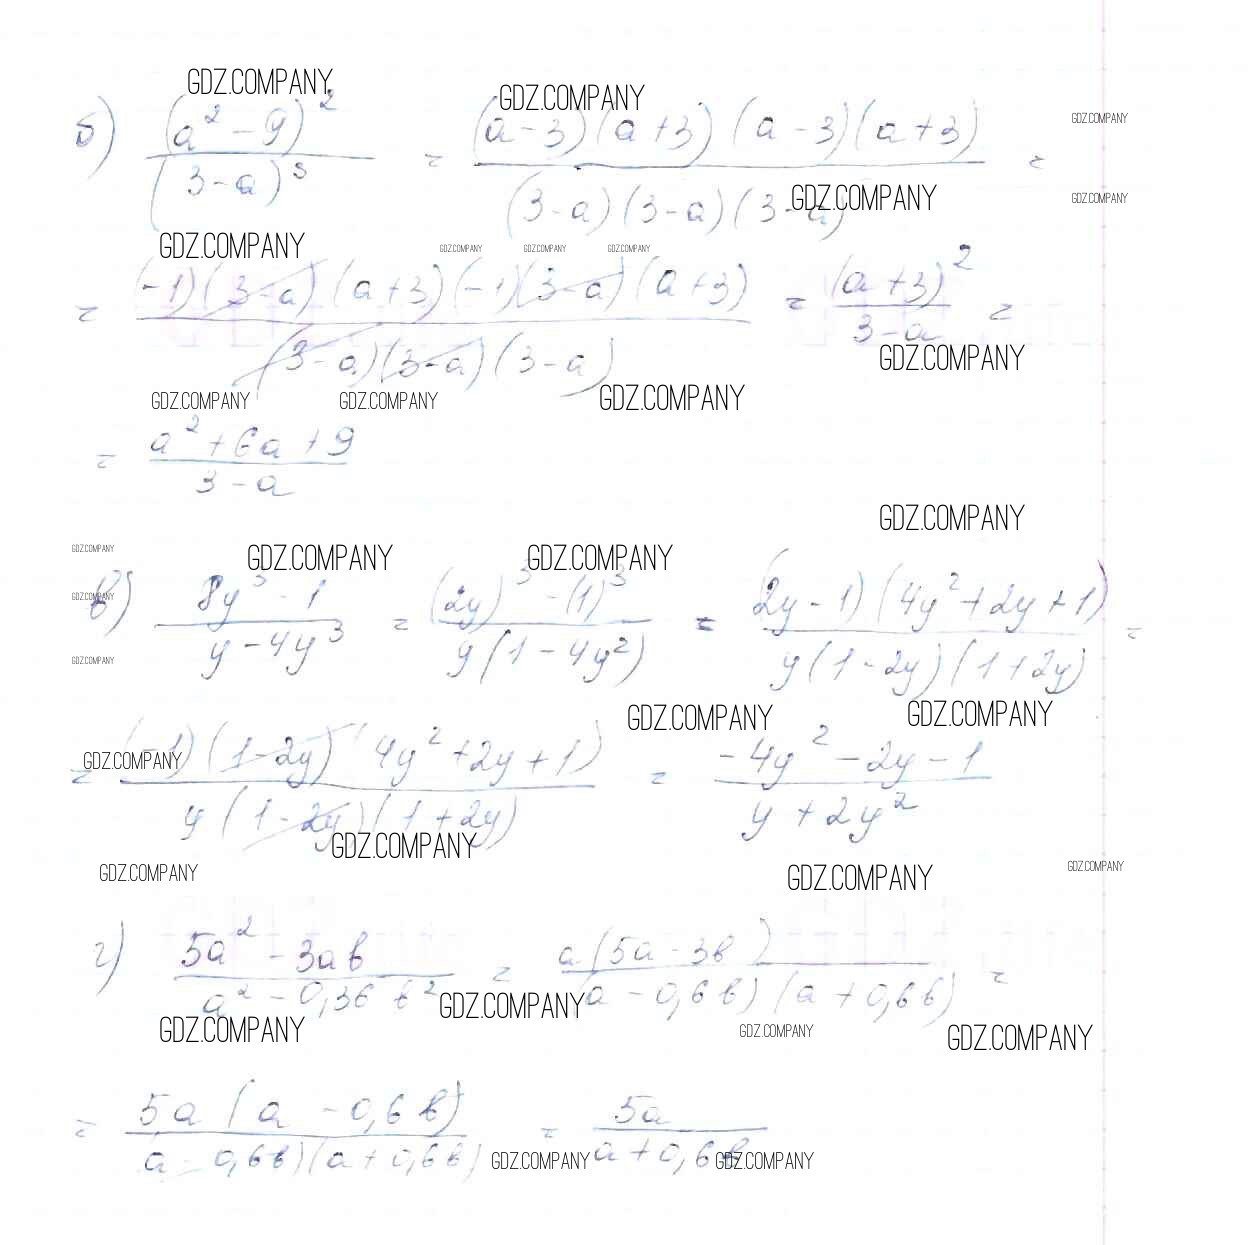 GDZ.COMPANY GDZ.COMPANY GDZ.COMPANY
б) (a² - 9)² / (3-a)³ = (a-3)(a+3)(a-3)(a+3) / (3-a)(3-a)(3-a) =
GDZ.COMPANY GDZ.COMPANY
GDZ.COMPANY GDZ.COMPANY GDZ.COMPANY GDZ.COMPANY
= (-1)(3-a)(a+3)(-1)(3-a)(a+3) / (3-a)(3-a)(3-a) = (a+3)² / 3-a =
GDZ.COMPANY
GDZ.COMPANY GDZ.COMPANY GDZ.COMPANY
= a² + 6a + 9 / 3-a
GDZ.COMPANY
GDZ.COMPANY GDZ.COMPANY GDZ.COMPANY
GDZ.COMPANY
в) 8y³ - 1 / y - 4y³ = (2y)³ - (1)³ / y(1 - 4y²) = (2y - 1)(4y² + 2y + 1) / y(1 - 2y)(1 + 2y) =
GDZ.COMPANY
GDZ.COMPANY GDZ.COMPANY
GDZ.COMPANY
= (-1)(1-2y)(4y² + 2y + 1) / y(1-2y)(1 + 2y) = -4y² - 2y - 1 / y + 2y²
GDZ.COMPANY
GDZ.COMPANY GDZ.COMPANY GDZ.COMPANY
г) 5a² - 3aв / a² - 0,36в² = a(5a - 3в) / (a - 0,6в)(a + 0,6в) =
GDZ.COMPANY
GDZ.COMPANY GDZ.COMPANY GDZ.COMPANY
= 5a(a - 0,6в) / (a - 0,6в)(a + 0,6в) = 5a / a + 0,6в
GDZ.COMPANY GDZ.COMPANY